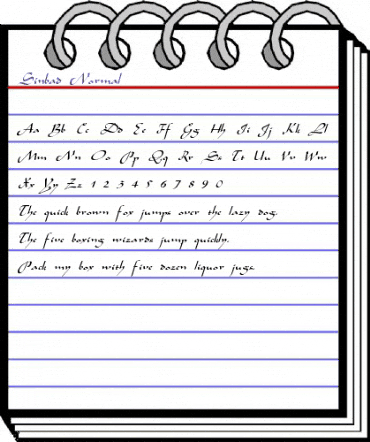 Sinbad Normal
Aa Bb Cc Dd Ee Ff Gg Hh Ii Jj Kk Ll
Mm Nn Oo Pp Qq Rr Ss Tt Uu Vv Ww
Xx Yy Zz 1 2 3 4 5 6 7 8 9 0
The quick brown fox jumps over the lazy dog.
The five boxing wizards jump quickly.
Pack my box with five dozen liquor jugs.